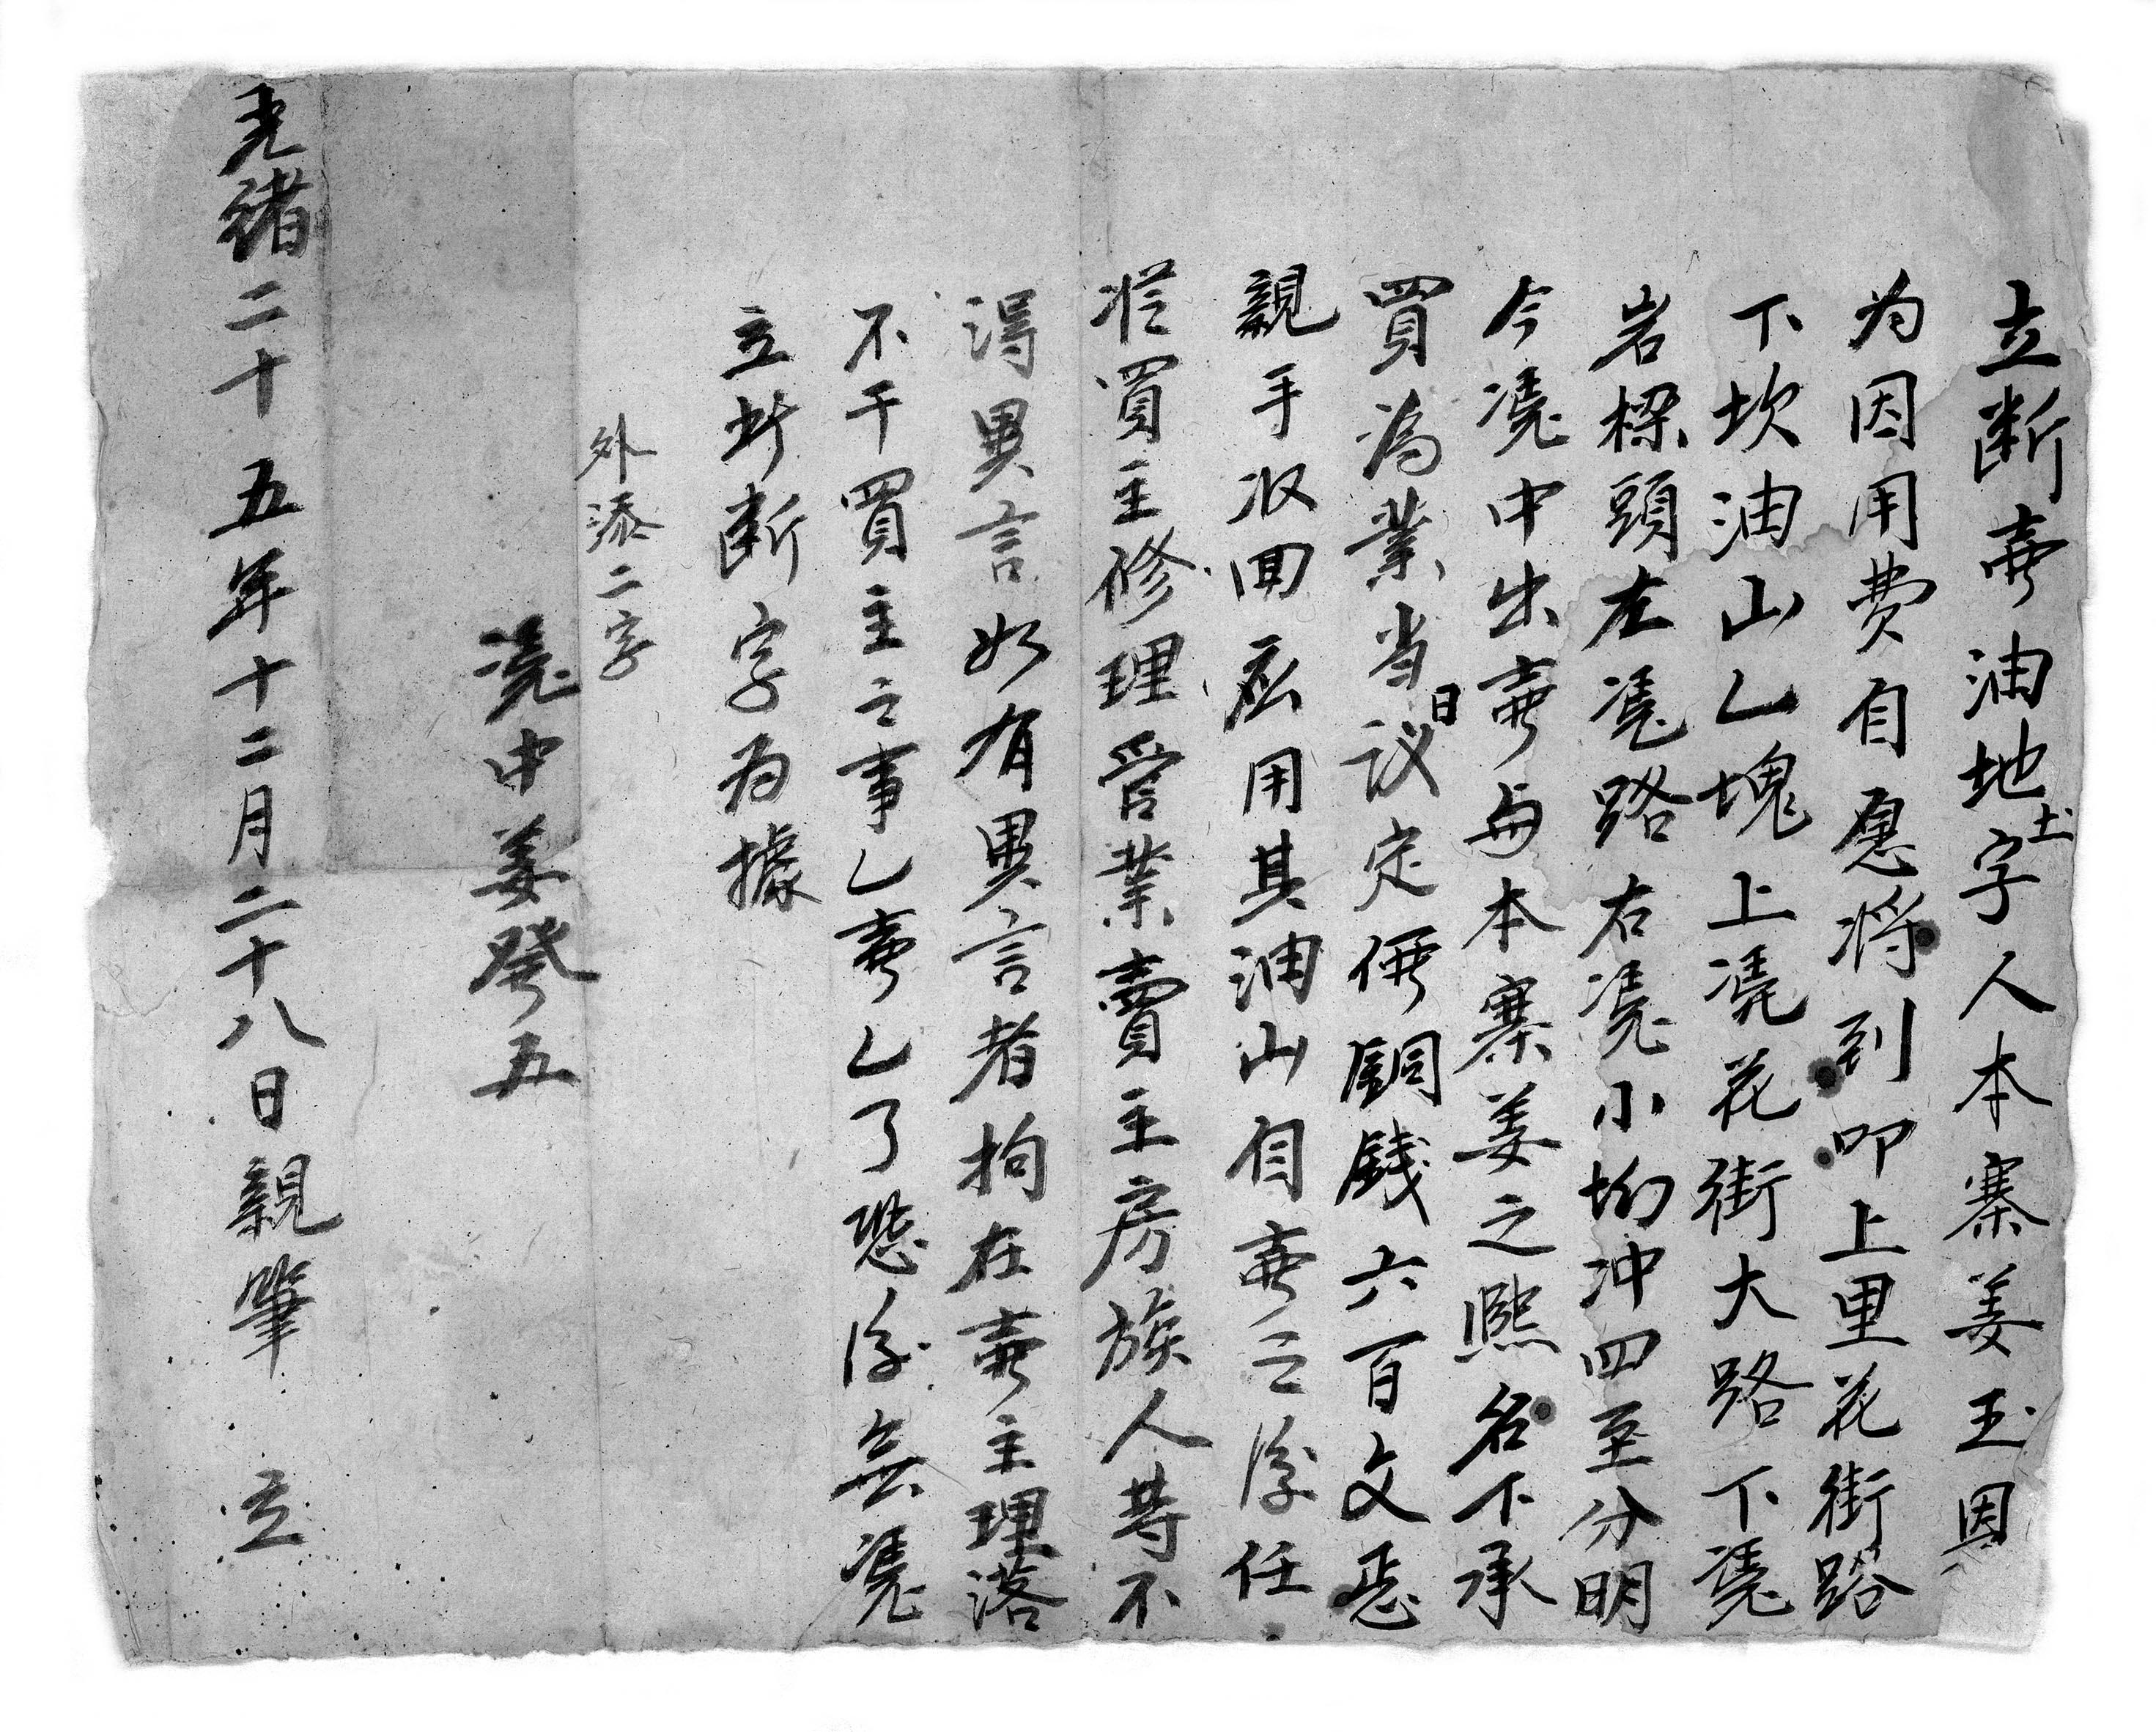 立断賣油地土字人本寨姜玉恩
为因用费自愿将到叩上里花街路
下坎油山乙塊上凴花街大路下凴
岩樑頭左凴路右凴小坳冲四至分明
今凴中出賣与本寨姜之熙名下承
買為業当日议定價銅錢六百文悉
親手收回应用其油山自賣之后任
凭買主修理管業賣主房族人等不
淂異言如有異言者拘在賣主理落
不干買主之事乙賣乙了恐后無凴
立此断字为據
外添二字
凴中姜癸五
光緒二十五年十二月二十八日親筆 立